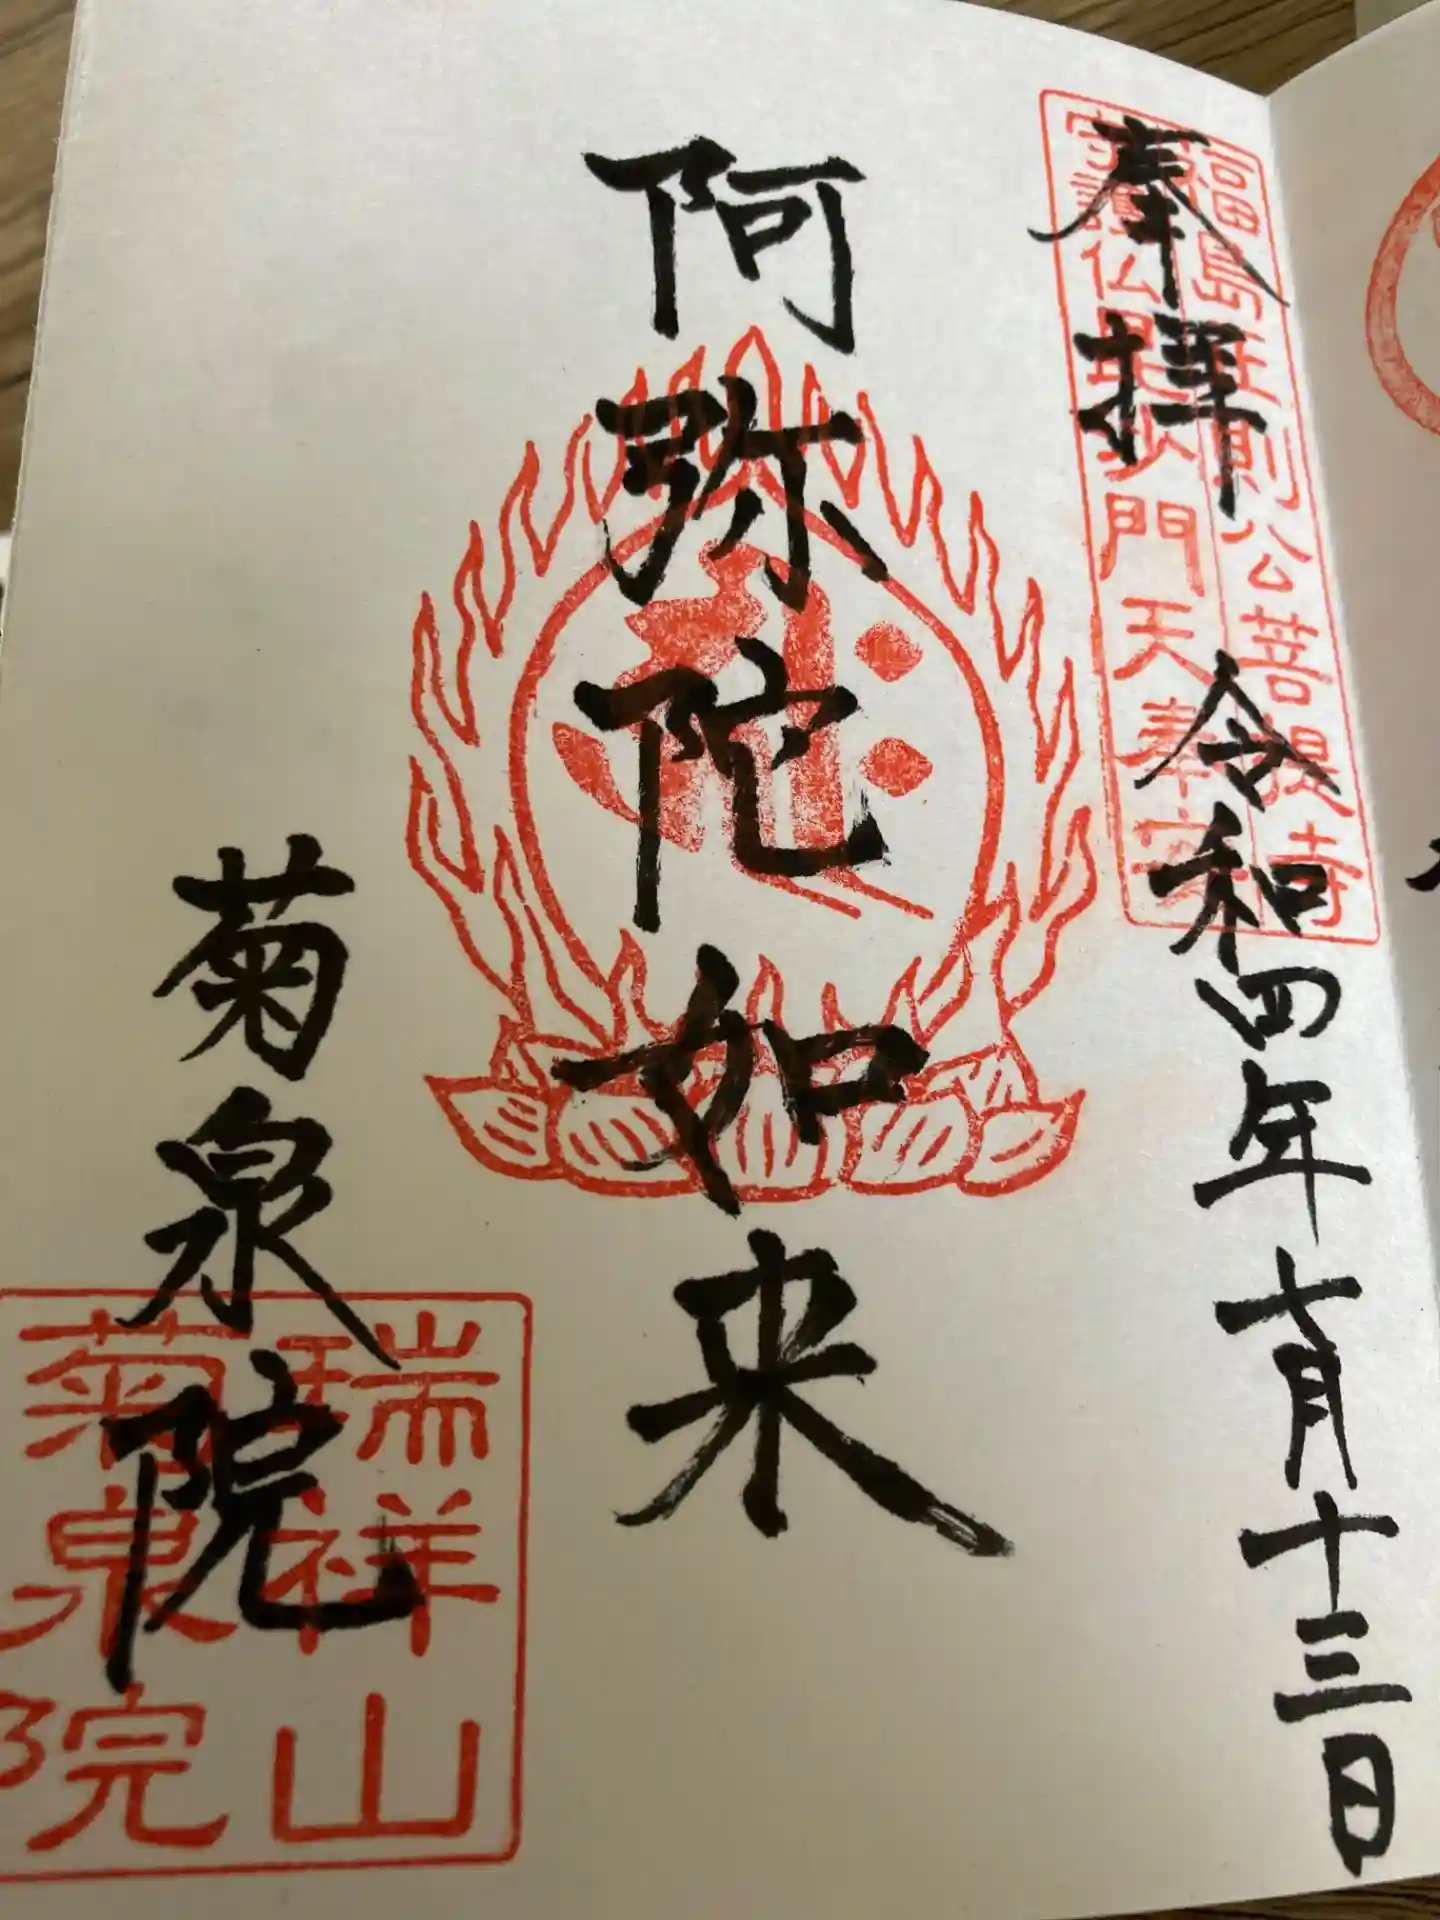 奉拝 令和四年七月十三日
福島正則公菩提寺
守護仏毘沙門天奉安
阿弥陀如来
菊泉院
瑞祥山
菊泉院